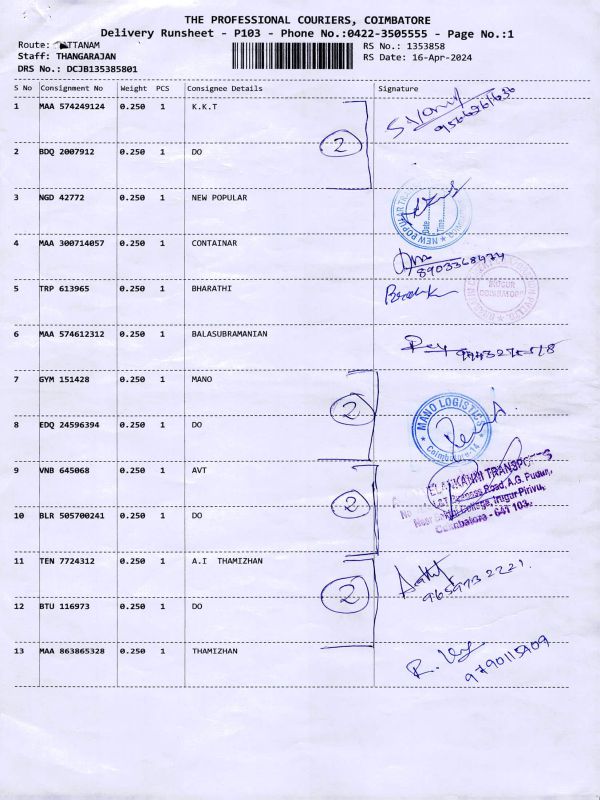 THE PROFESSIONAL COURIERS, COIMBATORE
Delivery Runsheet - P103 - Phone No.:0422-3505555 - Page No.:1
Route: ATTANAM
RS No.: 1353858
Staff: THANGARAJAN
RS Date: 16-Apr-2024
DRS No.: DCJB135385801
S No Consignment No Weight PCS Consignee Details Signature
1 MAA 574249124 0.250 1 K.K.T
2
2 BDQ 2007912 0.250 1 DO
3 NGD 42772 0.250 1 NEW POPULAR
NEW POPULAR
Date
Time
4 MAA 300714057 0.250 1 CONTAINAR
8903368474
5 TRP 613965 0.250 1 BHARATHI
IRUGUR
COIMBATORE
6 MAA 574612312 0.250 1 BALASUBRAMANIAN
7 GYM 151428 0.250 1 MANO
2
MANO LOGISTICS
Coimbatore-14
8 EDQ 24596394 0.250 1 DO
9 VNB 645068 0.250 1 AVT
2
TRANSPORTS
Road, A.G. Pudur,
College, Irugur Pirivu,
Coimbatore - 641 103.
10 BLR 505700241 0.250 1 DO
11 TEN 7724312 0.250 1 A.I THAMIZHAN
2
9659732221
12 BTU 116973 0.250 1 DO
13 MAA 863865328 0.250 1 THAMIZHAN
9790115909